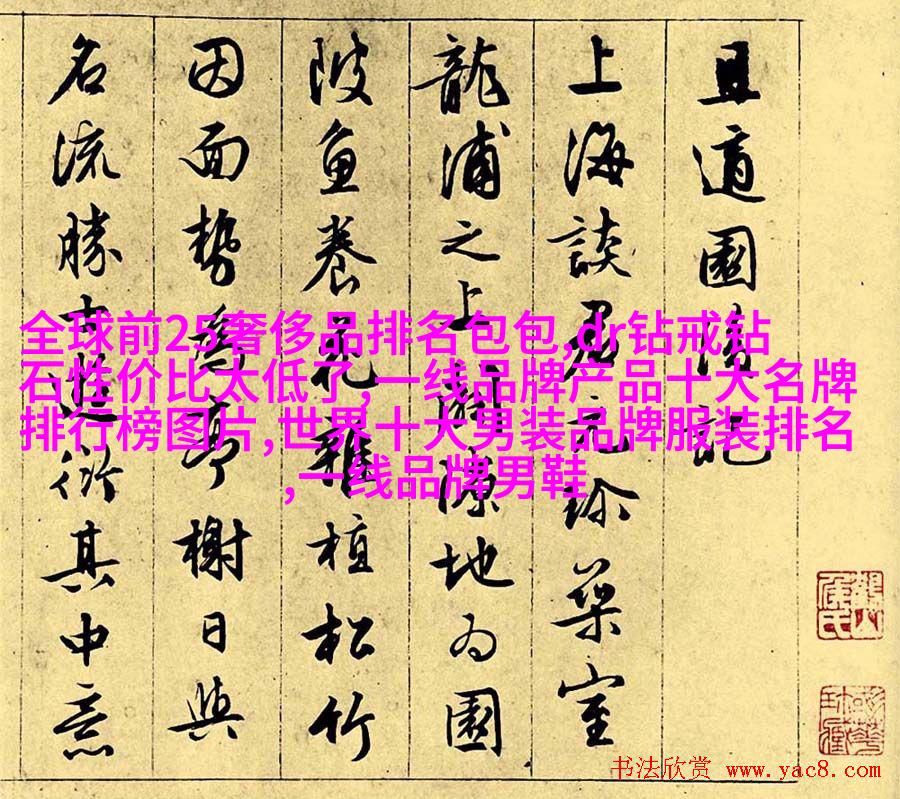 且適園記
上海談君元珍築室
龍浦之上闢隙地為園
陂魚養花雜植松竹
因面勢為亭榭日與
名流勝士遊衍其中意
全球前25奢侈品排名包包,dr钻戒钻
石性价比太低了,一线品牌产品十大名牌
排行榜图片,世界十大男装品牌服装排名
,一线品牌男鞋
书法欣赏 www.yac8.com